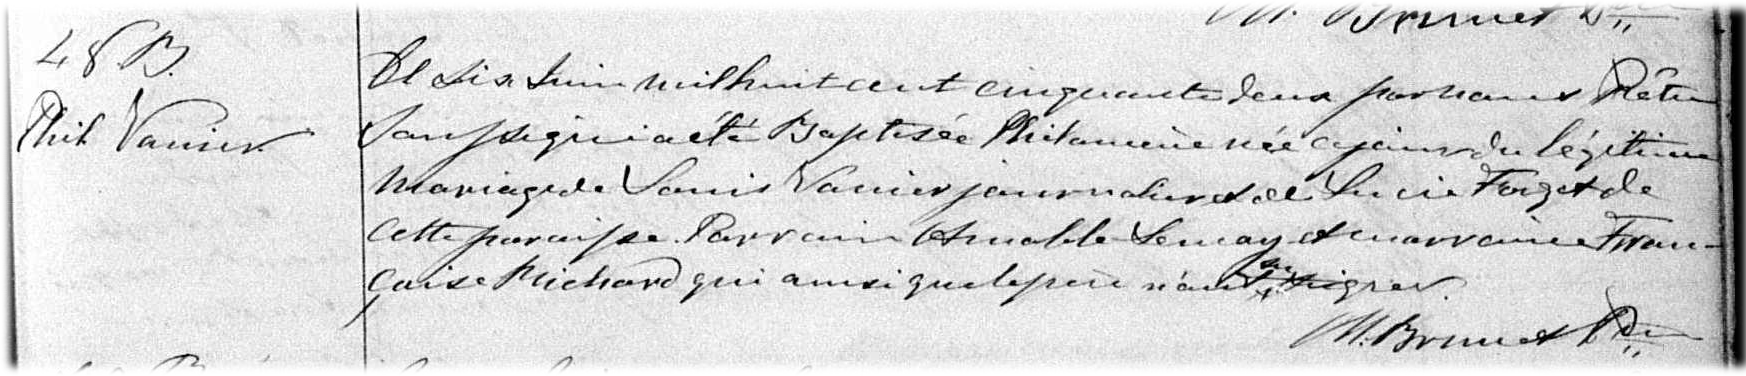 M. Brunet Ptre
48 B.
Phil Vanier
Le Six Juin mil huit cent cinquante deux par nous Prêtre
Soussigné a été Baptisée Philomène née ce jour du légitime
mariage de Louis Vanier journalier et de Lucie Forget de
cette paroisse. Parrain Amable Lemay et marraine Fran-
çoise Richard qui ainsi que le père n'ont su signer.
M. Brunet Ptre